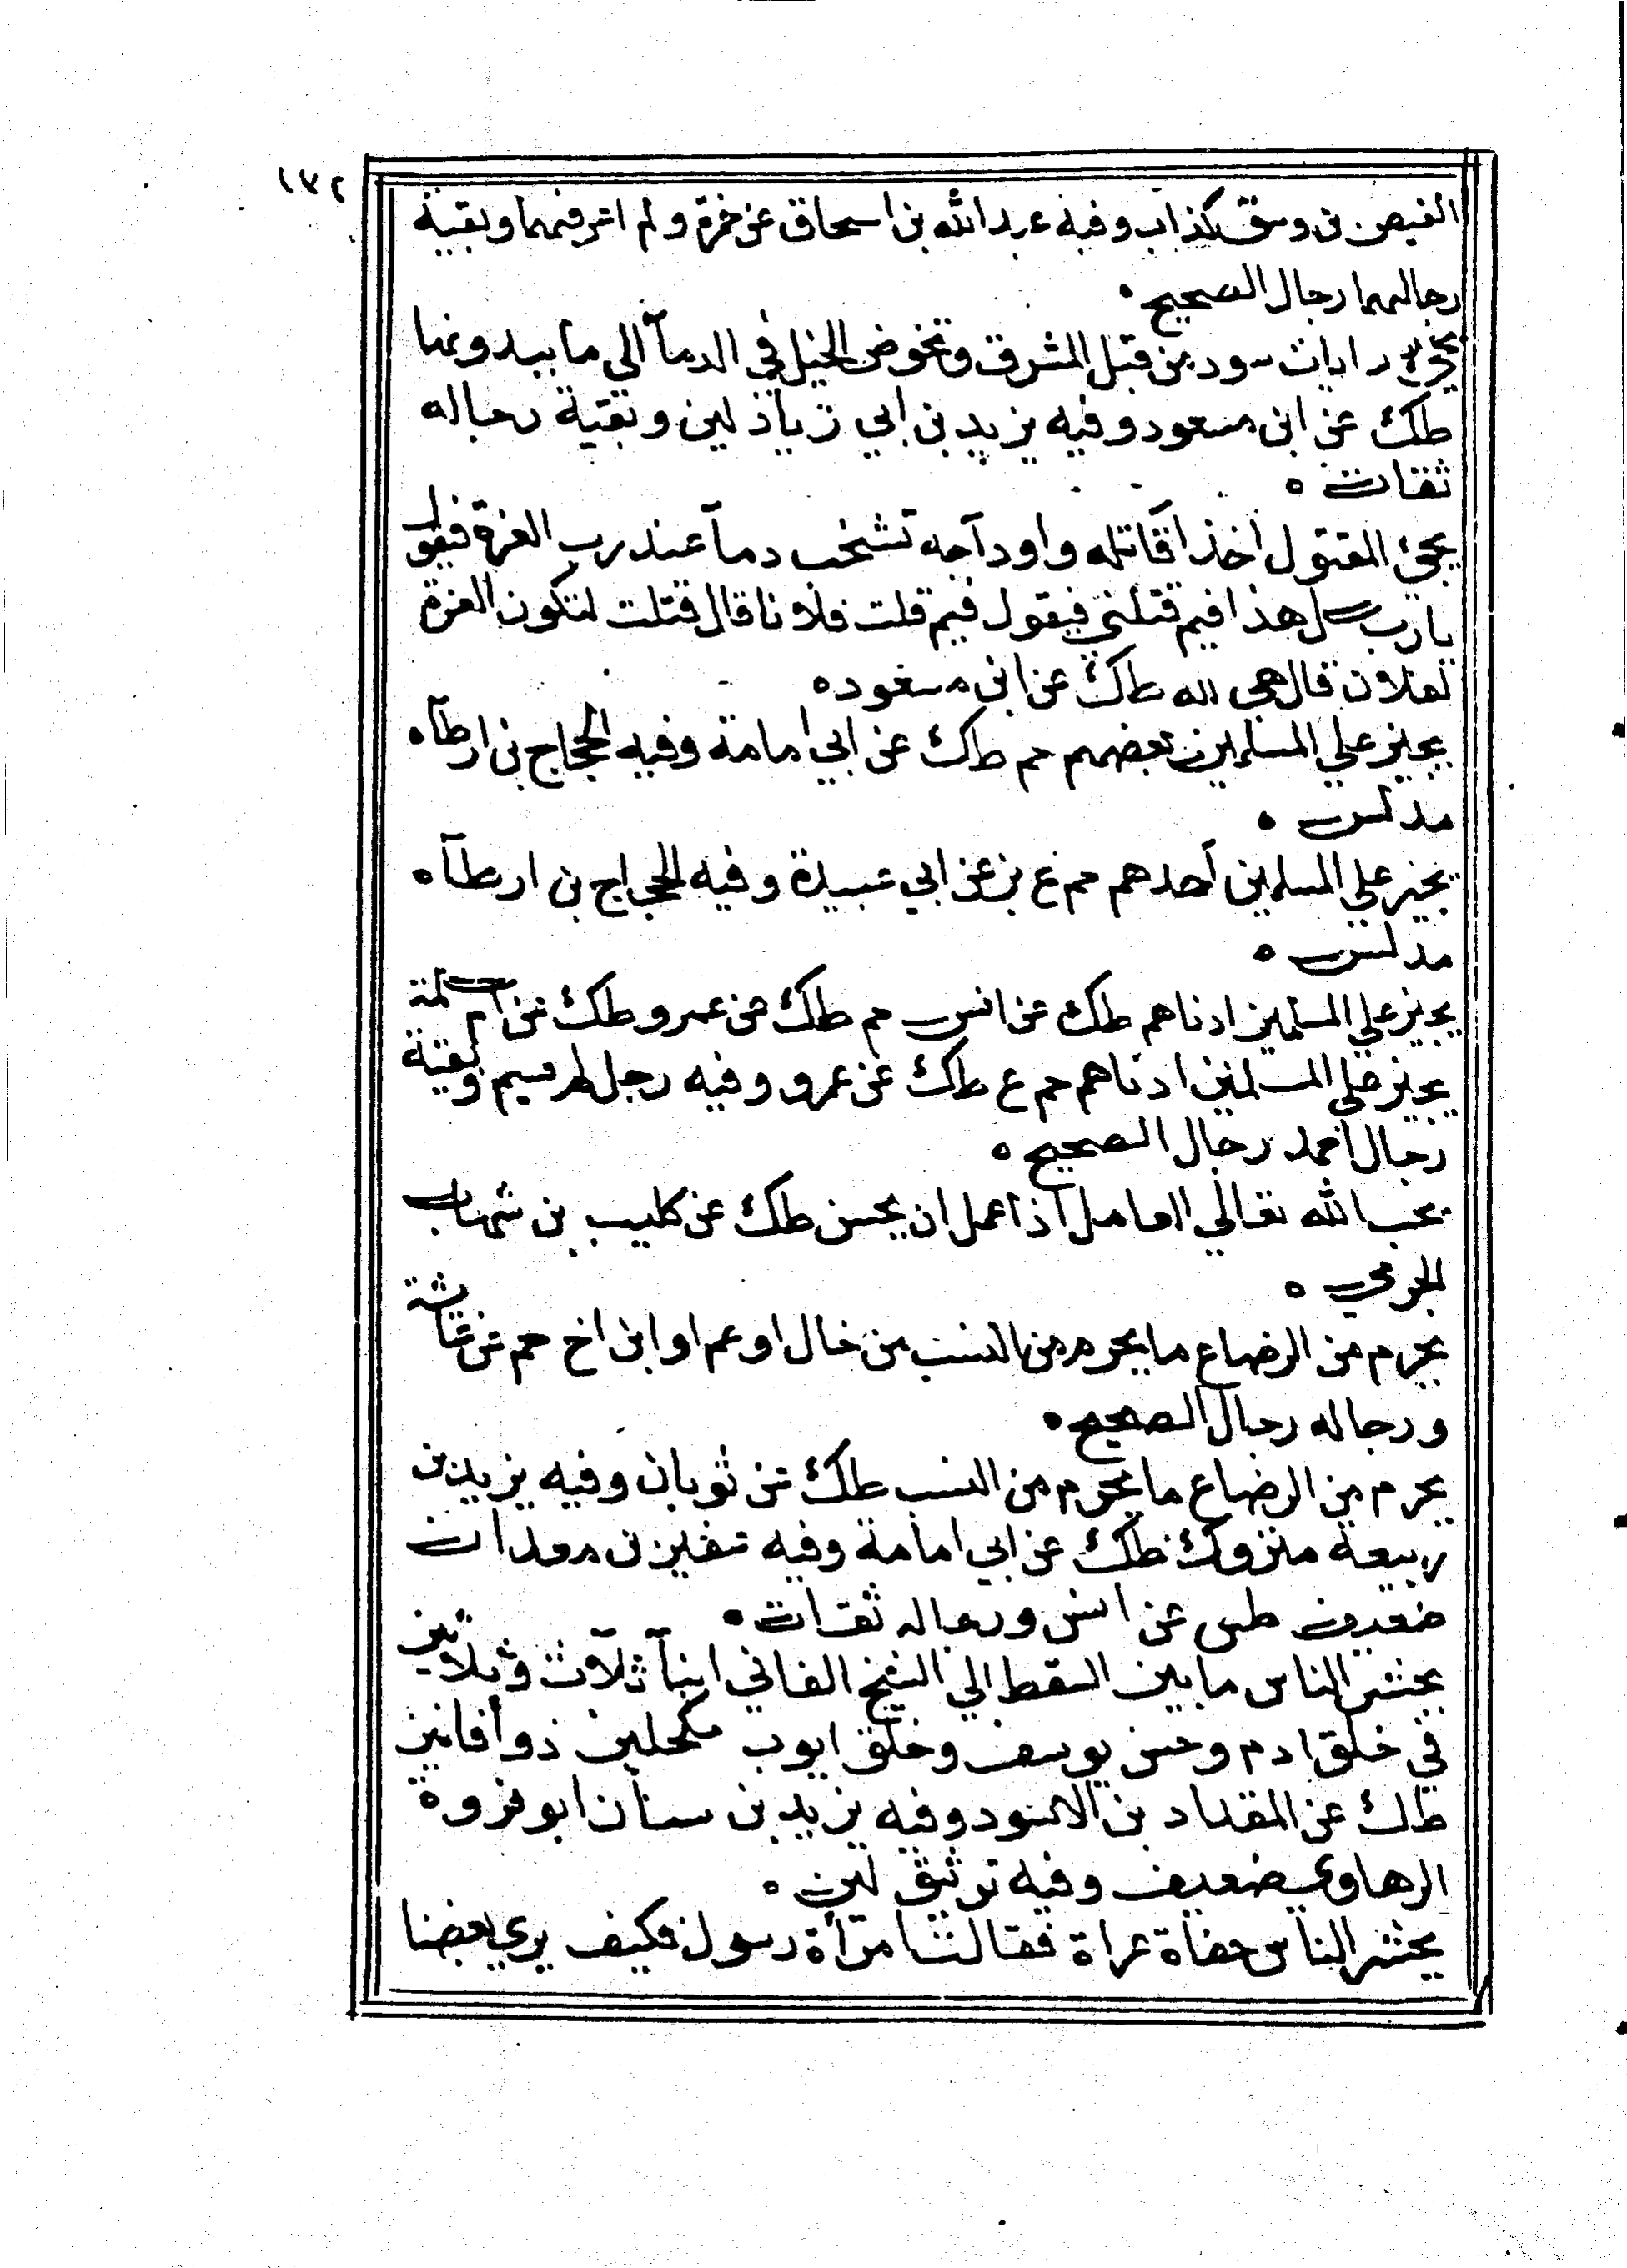 ١٧٢
الفيض بن وثيق كذاب وفيه عبد الله بن اسحاق عن حمزة ولم اعرفهما وبقية
رجالهما رجال الصحيح ه
رايات سود من قبل المشرق وتخوض الخيل في الدمآ الي ما بيد ونها
طك عن ابن مسعود وفيه يزيد بن ابي زياد لين وبقية رجاله
ثقات ه
يجئ المقتول اخذا قاتله واوداجه تشخب دمآ عند رب العزة فيقول
يارب سل هذا فيم قتلني فيقول فيم قلت فلانا قال قتلت لتكون العزة
لفلان قال هي لله طك عن ابن مسعود ه
يجيز علي المسلمين بعضهم حم طك عن ابي امامة وفيه الحجاج بن ارطآه
مدلس ه
يجير علي المسلمين أحدهم حم ع بز عن ابي عبيدة وفيه الحجاج بن ارطآه
مدلس ه
يجيز علي المسلمين ادناهم طك عن انس حم طك عن عمرو طك عن ام سلمة
يجيز علي المسلمين ادناهم حم ع طك عن عمرو وفيه رجل لم يسم وبقية
رجال احمد رجال الصحيح ه
يحب الله تعالي العامل اذا عمل ان يحسن طك عن كليب بن شهاب
الجرمي ه
يحرم من الرضاع ما يحرم من النسب من خال او عم او ابن اخ حم عن عائشة
ورجاله رجال الصحيح ه
يحرم من الرضاع ما يحرم من النسب طك عن ثوبان وفيه يزيد بن
ربيعة متروك طك عن ابي امامة وفيه عفير بن معدان
ضعيف طس عن انس ورجاله ثقات ه
يحشر الناس ما بين السقط الي الشيخ الفاني ابنآ ثلاث وثلاثين
في خلق ادم وحسن يوسف وخلق ايوب مكحلين ذو أفانين
طك عن المقداد بن الاسود وفيه يزيد بن سنان ابو فروة
الرهاوي ضعيف وفيه توثيق لين ه
يحشر الناس حفاة عراة فقالت امرأة رسول فكيف يري بعضنا